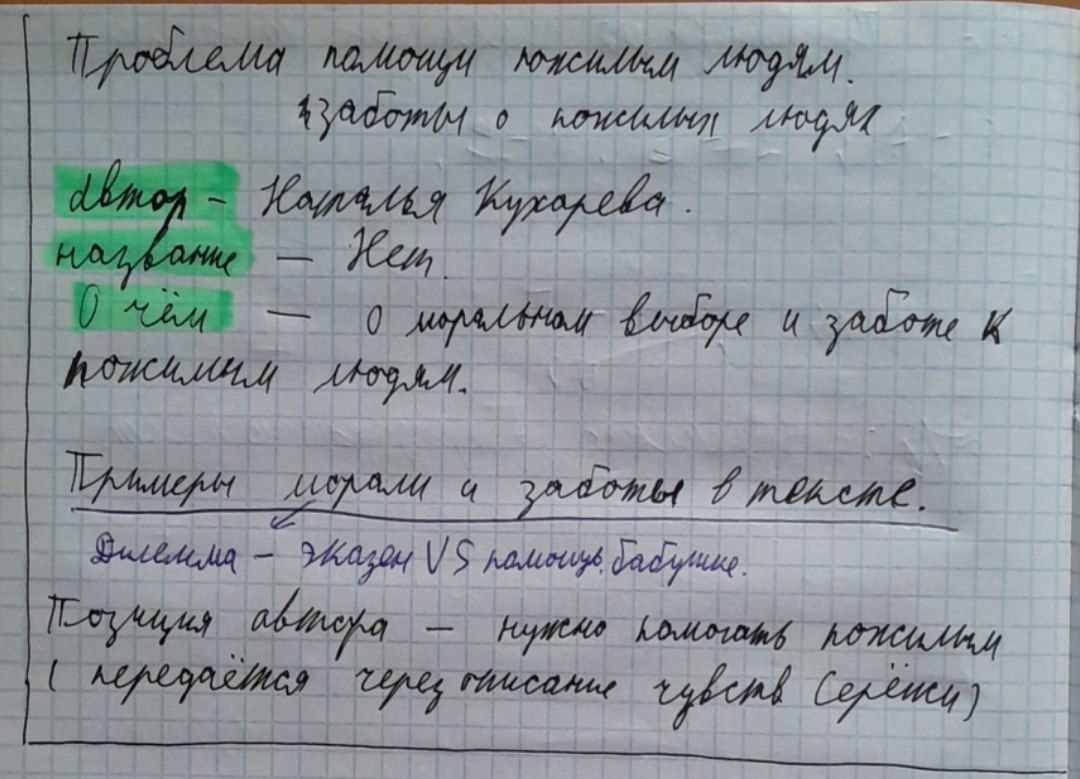 Проблема помощи пожилым людям.
заботы о пожилых людях
Автор - Наталья Кухарева.
название - Нет.
О чём - о моральном выборе и заботе к
пожилым людям.
Примеры морали и заботы в тексте.
Дилемма - экзамен VS помощь бабушке.
Позиция автора - нужно помогать пожилым
(передаётся через описание чувств Серёжи)